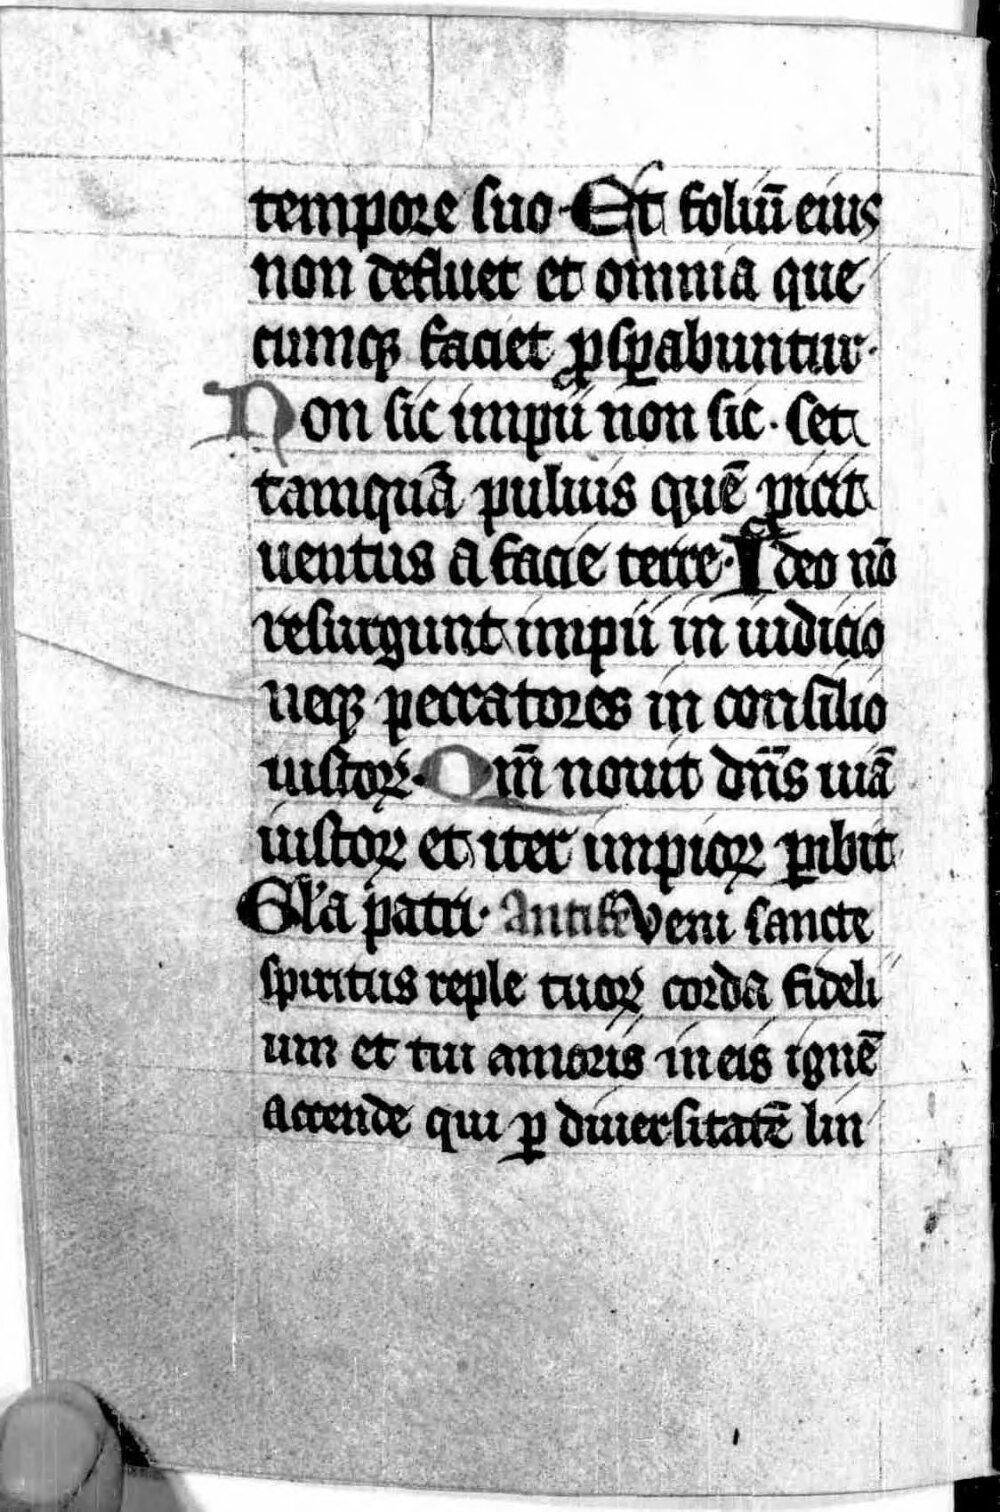 tempore suo · Et foliū eius
non defluet et omnia que
cumqꝫ faciet ꝓsꝑabuntur ·
Non sic impii non sic · set
tamquā puluis quē ꝓicit
uentus a facie terre · Ideo nō
resurgunt impii in iudicio
neqꝫ peccatores in consilio
iustoꝝ · Qm̄ nouit dn̄s uiā
iustoꝝ et iter impioꝝ ꝑibit
Gl̓a patri · Antife Veni sancte
spiritus reple tuoꝝ corda fideli
um et tui amoris in eis ignē
accende qui ꝑ diuersitatē lin